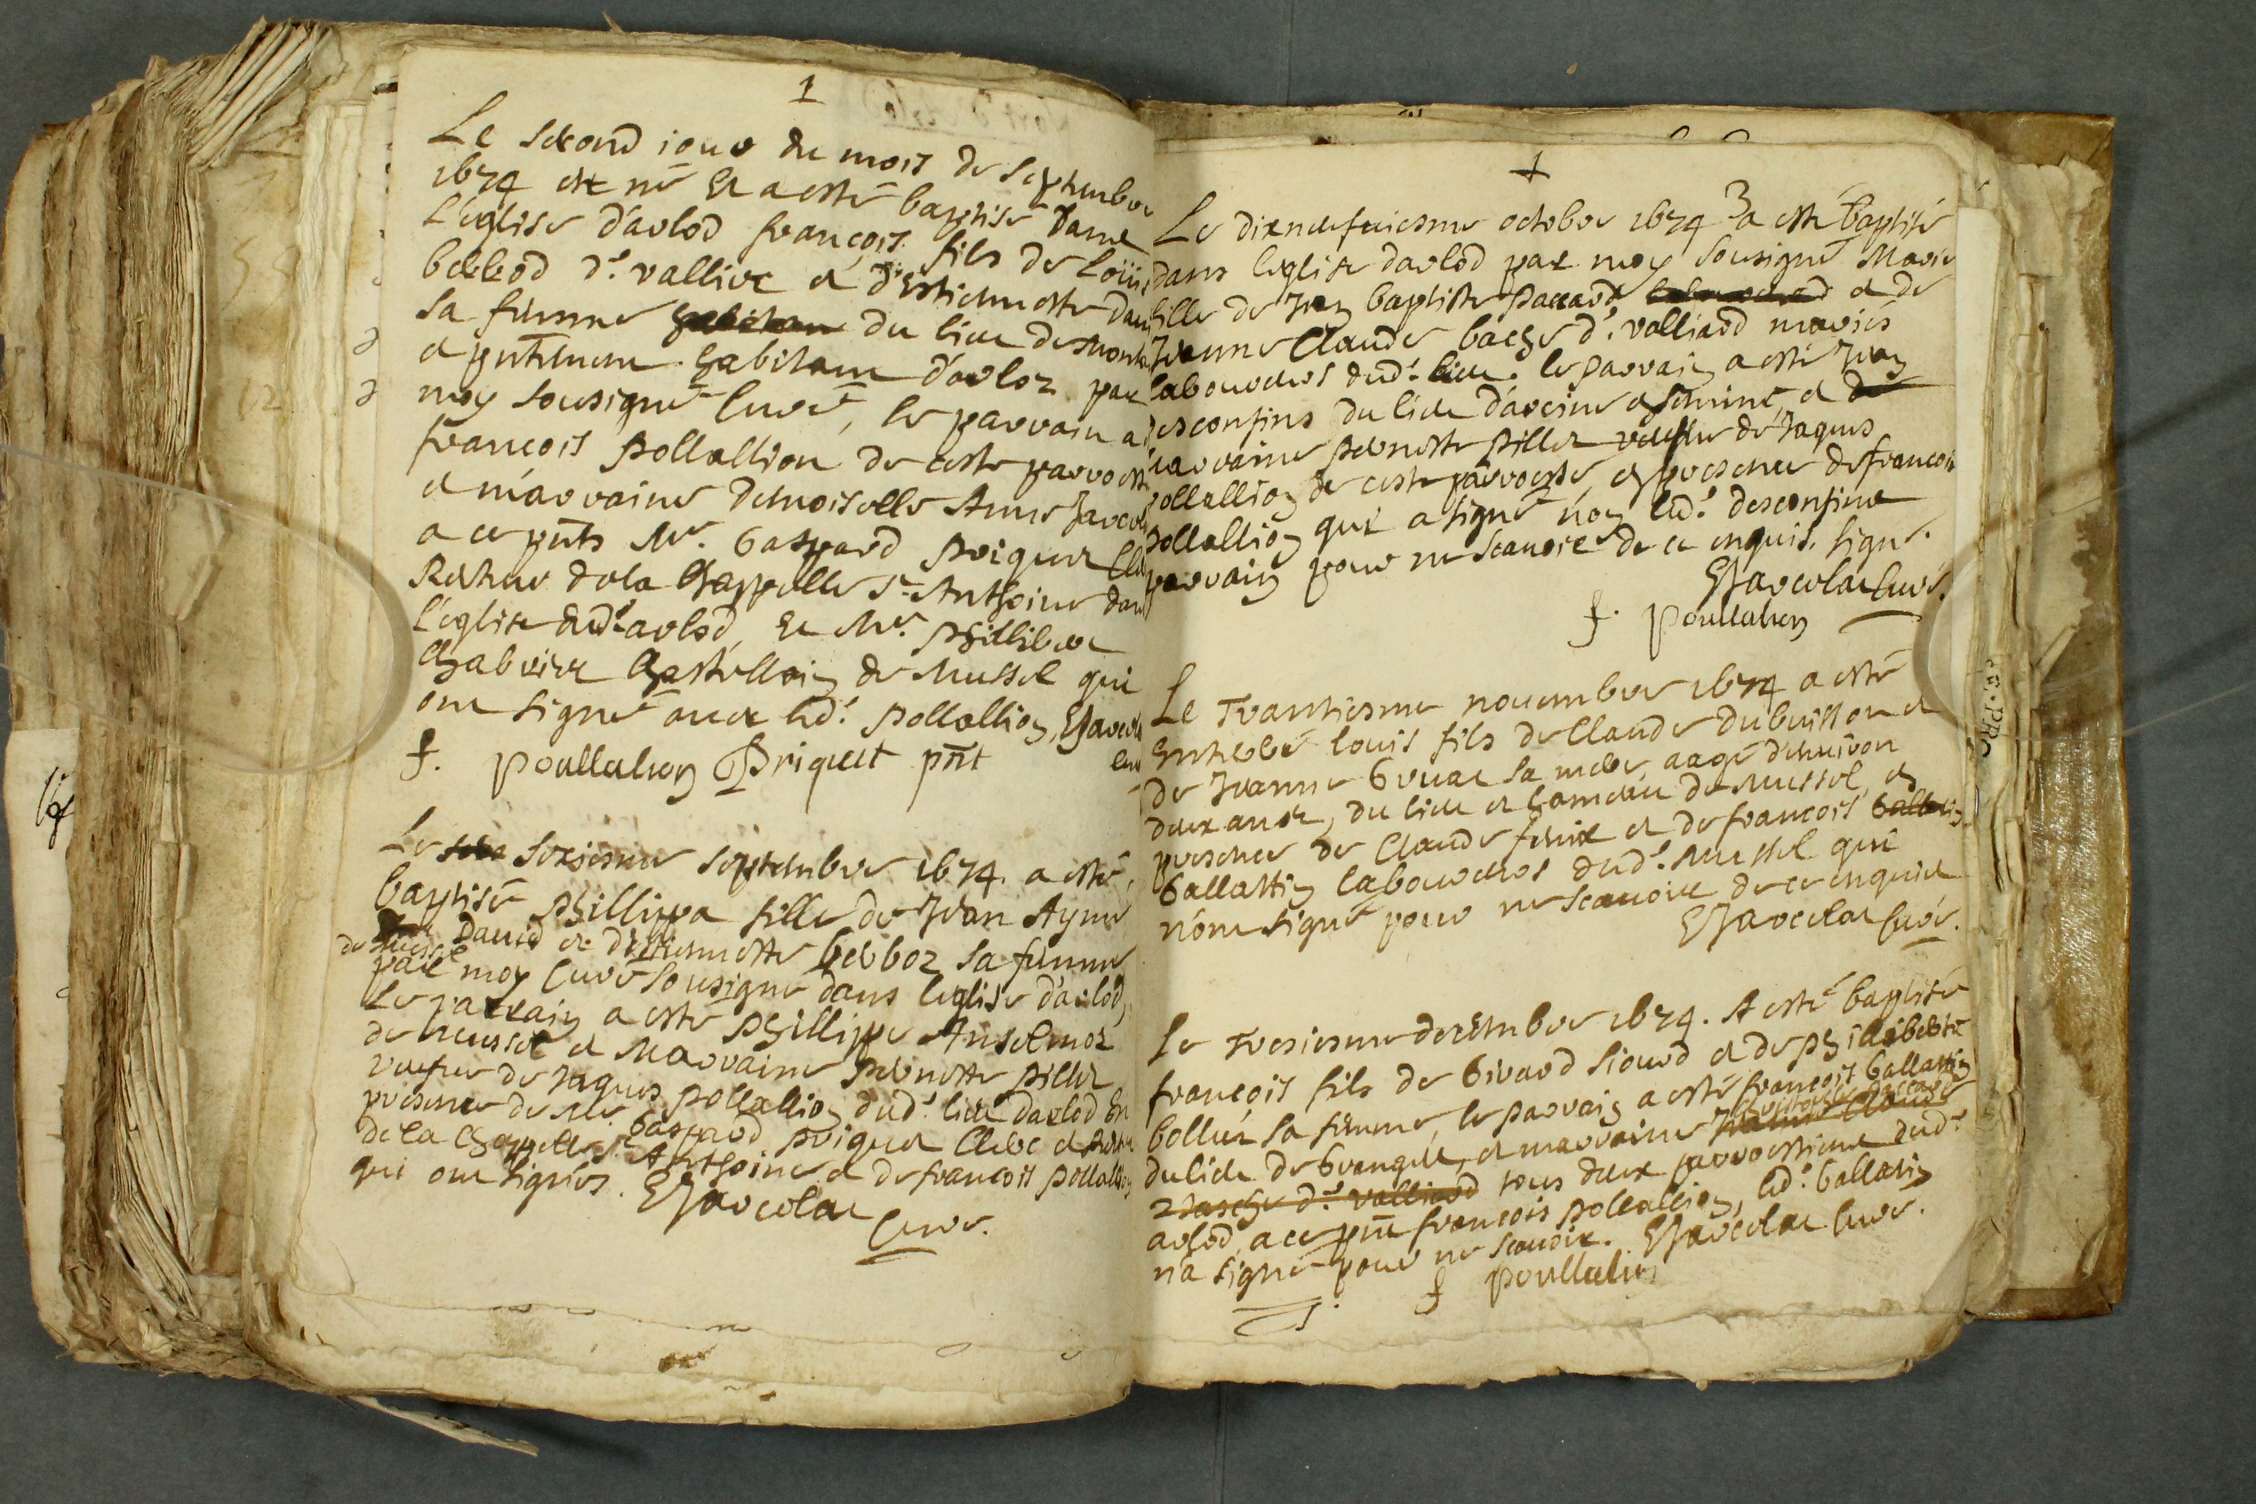 1
Le second iour du mois de septembre
1674 est né Et a esté baptisé dans
L'eglise d'arlod françois fils de Loüis
berrod d.t valliet et d'Estiennette
sa femme du lieu des
et pñtement habitant d'arloz par
moy sousigné Curé, le parrain a
françois pollallion de ceste parroesse
et marraine demoiselle Anne Jarcelat
a ce pñts Mr. Gaspard priquet
Recteur de la Chappelle St Anthoine dans
l'eglise dud.t arlod, Et Mr. phillibert
Chabrier Chastellain de Mussel qui
ont signé auec led.t pollallion, EJarcelat
curé
f. poullalion Priquet pñt
Le sexiesme septembre 1674. a esté
baptisé phillippa fille de Jean Ayme
David et d'Estiennette berboz sa femme
de mussel
par moy Curé sousigné dans l'eglise d'arlod,
Le parrain a esté phillippe Anselmoz
de mussel et Marraine pernette piller
veufue de Jaques pollallion dud.t lieu d'arlod En
presence de Mr. Gaspard priquet Clerc et Recteur
de la Chappelle St Anthoine et de françois pollallion
qui ont signés. EJarcelat
Curé.
Le dixneufuiesme octobre 1674 a esté baptisé
dans l'eglise d'arlod par moy sousigné Marie
fille de Jean baptiste paccard et de
Jeanne Claude d.t valliard mariés
laboureurs dud.t lieu. le parrain a esté Jean
desconfins du lieu d'arcine et
marraine pernette piller veufue de Jaques
pollallion de ceste parroesse, en presence de françois
pollallion qui a signé non led.t desconfins
parrain pour ne scauoir de ce enquis. signé.
EJarcelat Curé.
f. poullalion
Le Trantiesme nouembre 1674 a esté
Enterré louis fils de Claude dubuisson et
de Jeanne Gruat sa mere, aagé d'enuiron
deux ans, du lieu et hameau de Mussel, en
presence de Claude et de françois
Gallattin laboureurs dud.t Mussel qui
n'ont signé pour ne scauoir de ce enquis
EJarcelat Curé.
Le Tresiesme decembre 1674. A esté baptisé
françois fils de Girard sioud et de philiberte
bolliet sa femme, le parrain a esté françois Gallattin
du lieu de Grangett, et marraine Jeanne Claude
d.t valliard tous deux parroessiens dud.t
arlod, a ce pñt françois pollallion, led.t Gallatin
n'a signé pour ne scauoir. EJarcelat Curé.
f poullalion